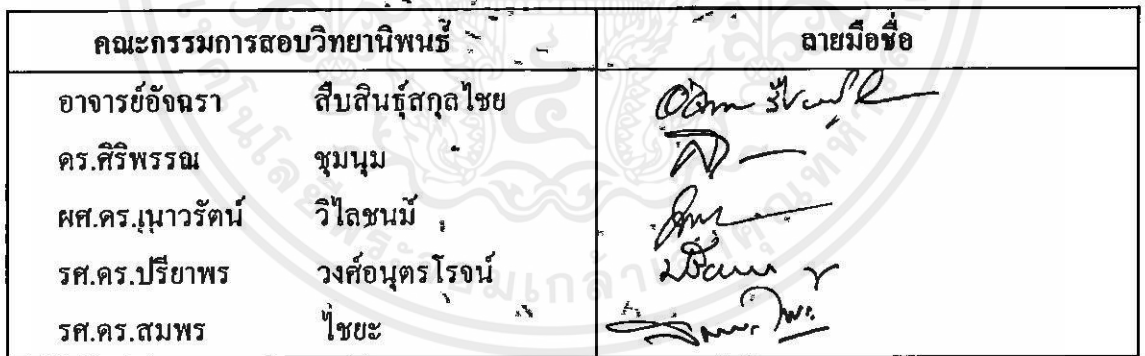 คณะกรรมการสอบวิทยานิพนธ์ ลายมือชื่อ
อาจารย์อัจฉรา สืบสินธุ์สกุลไชย
ดร.ศิริพรรณ ชุมนุม
ผศ.ดร.เนาวรัตน์ วิไลชนม์
รศ.ดร.ปรียาพร วงศ์อนุตรโรจน์
รศ.ดร.สมพร ไชยะ